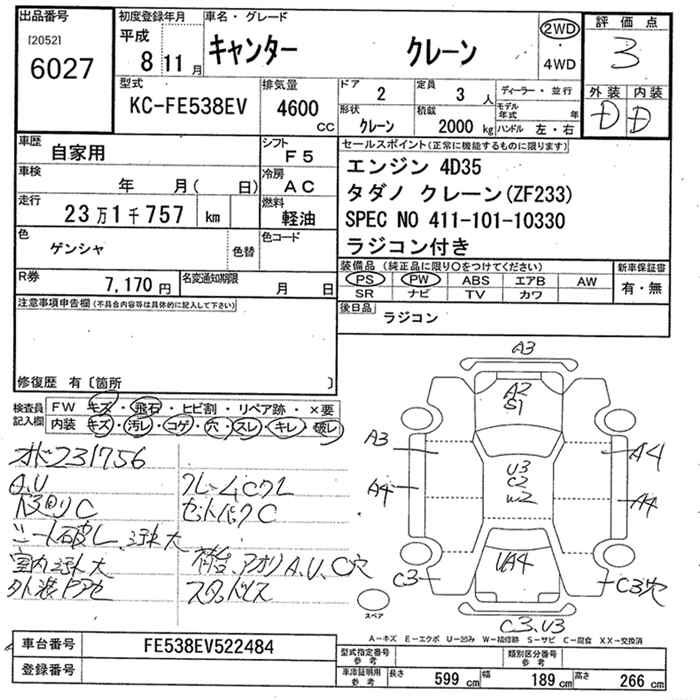 出品番号
[2052]
6027
初度登録年月
平成
8 11 月
車名・グレード
キャンター クレーン
2WD
・
4WD
評価点
3
外装 内装
D D
型式
KC-FE538EV
排気量
4600
cc
ドア
2
定員
3 人
ディーラー・並行
形状
クレーン
積載
2000 kg
モデル年式 年
ハンドル 左・右
車歴
自家用
シフト
F5
車検
年 月( 日)
冷房
AC
走行
23万1千757 km
燃料
軽油
色
ゲンシャ
色替
色コード
R券
7,170円
名変通知期限
月 日
セールスポイント(正常に機能するものに限ります)
エンジン 4D35
タダノ クレーン(ZF233)
SPEC NO 411-101-10330
ラジコン付き
装備品 (純正品に限り〇をつけてください)
新車保証書
PS PW ABS エアB AW
有・無
SR ナビ TV カワ
後日品
ラジコン
注意事項申告欄(不具合内容等は具体的に記入して下さい)
修復歴 有〔箇所 〕
検査員記入欄
FW キズ・飛石・ヒビ割・リペア跡・×要
内装 キズ・汚レ・コゲ・穴・スレ・キレ・破レ
231756
A.U
下回りC
シート破レ、汚れ大
室内汚れ大
外装
クレームCクレ
セットバックC
荷台、アオリA、U、C穴
A3
A2
S1
A3
A4
U3
C2
W2
A4
A4
UA4
C3
C3穴
スペア
C3.U3
A−キズ E−エクボ U−凹み W−補修跡 S−サビ C−腐食 XX−交換済
車台番号
FE538EV522484
登録番号
型式指定番号
参考
類別区分番号
参考
車庫証明用
参考
長さ 599 cm
幅 189 cm
高さ 266 cm